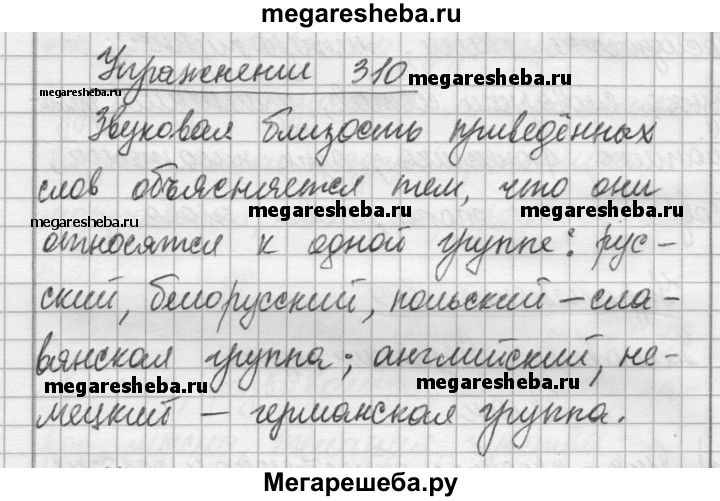 megaresheba.ru
Упражнении 310
megaresheba.ru
megaresheba.ru
Звуковая близость приведённых
слов объясняется тем, что они
megaresheba.ru
megaresheba.ru
относятся к одной группе: рус-
ский, белорусский, польский – сла-
вянская группа; английский, не-
megaresheba.ru
megaresheba.ru
мецкий – германская группа.
Мегарешеба.ру